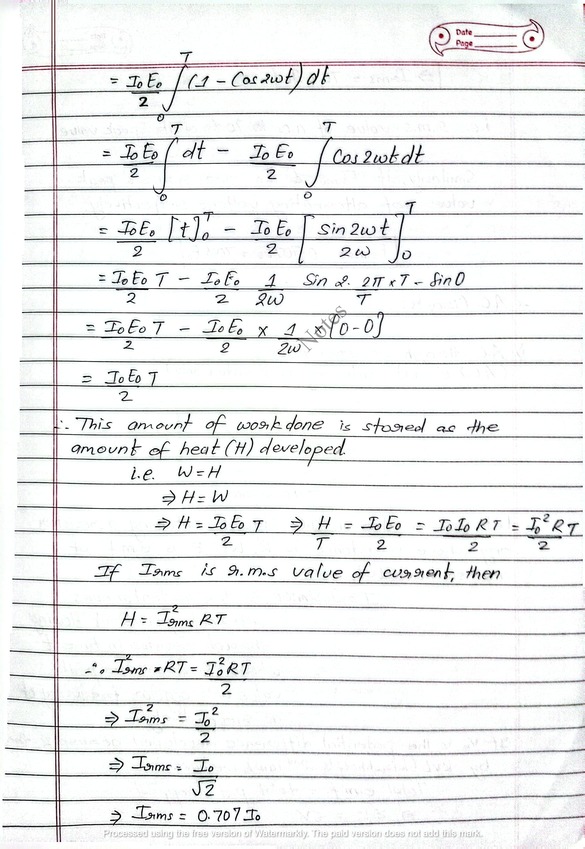 Date
Page
= I₀E₀/2 ∫₀ᵀ (1 - Cos2ωt) dt
= I₀E₀/2 ∫₀ᵀ dt - I₀E₀/2 ∫₀ᵀ Cos2ωt dt
= I₀E₀/2 [t]₀ᵀ - I₀E₀/2 [sin2ωt/2ω]₀ᵀ
= I₀E₀/2 T - I₀E₀/2 1/2ω Sin 2. 2π/T × T - Sin0
= I₀E₀T/2 - I₀E₀/2 × 1/2ω + [0-0]
Notes
= I₀E₀T/2
∴ This amount of workdone is stored as the
amount of heat (H) developed.
i.e. W=H
⇒ H=W
⇒ H = I₀E₀/2 T ⇒ H/T = I₀E₀/2 = I₀I₀RT/2 = I₀²RT/2
If Irms is r.m.s value of current, then
H = I²rms RT
∴ I²rms * RT = I₀²RT/2
⇒ I²rms = I₀²/2
⇒ Irms = I₀/√2
⇒ Irms = 0.707 I₀
Processed using the free version of Watermarkly. The paid version does not add this mark.